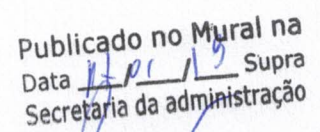 Publicado no Mural na
Data 17/01/19 Supra
Secretaria da administração